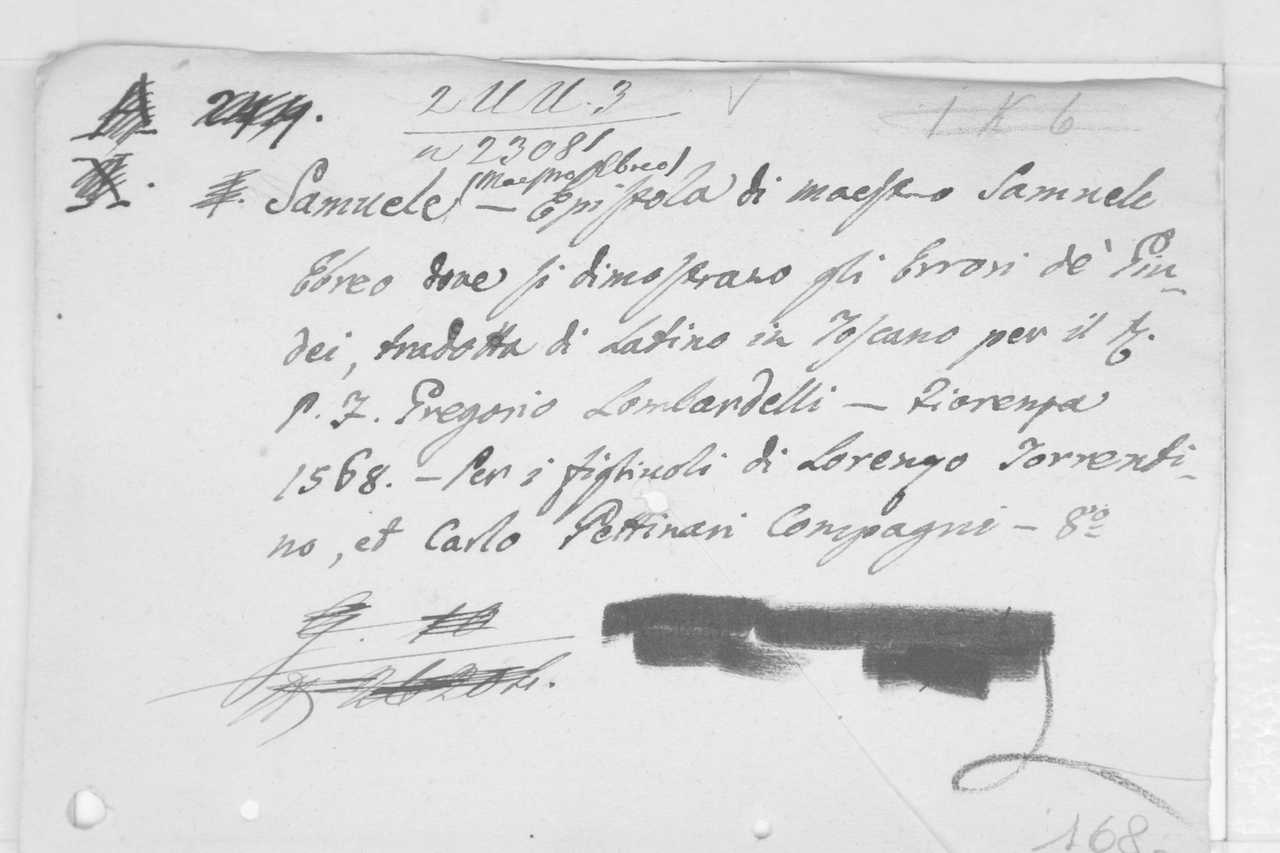 2 U U. 3
1 K 6
a 23081
(Maestro Ebreo)
Samuele, — Epistola di maestro Samuele
Ebreo dove si dimostrano gli Errori de' Giu-
dei, tradotta di Latino in Toscano per il R.
P. F. Gregorio Lombardelli — Fiorenza
1568. — Per i figliuoli di Lorenzo Torrenti-
no, et Carlo Pettinari Compagni — 8º
168.